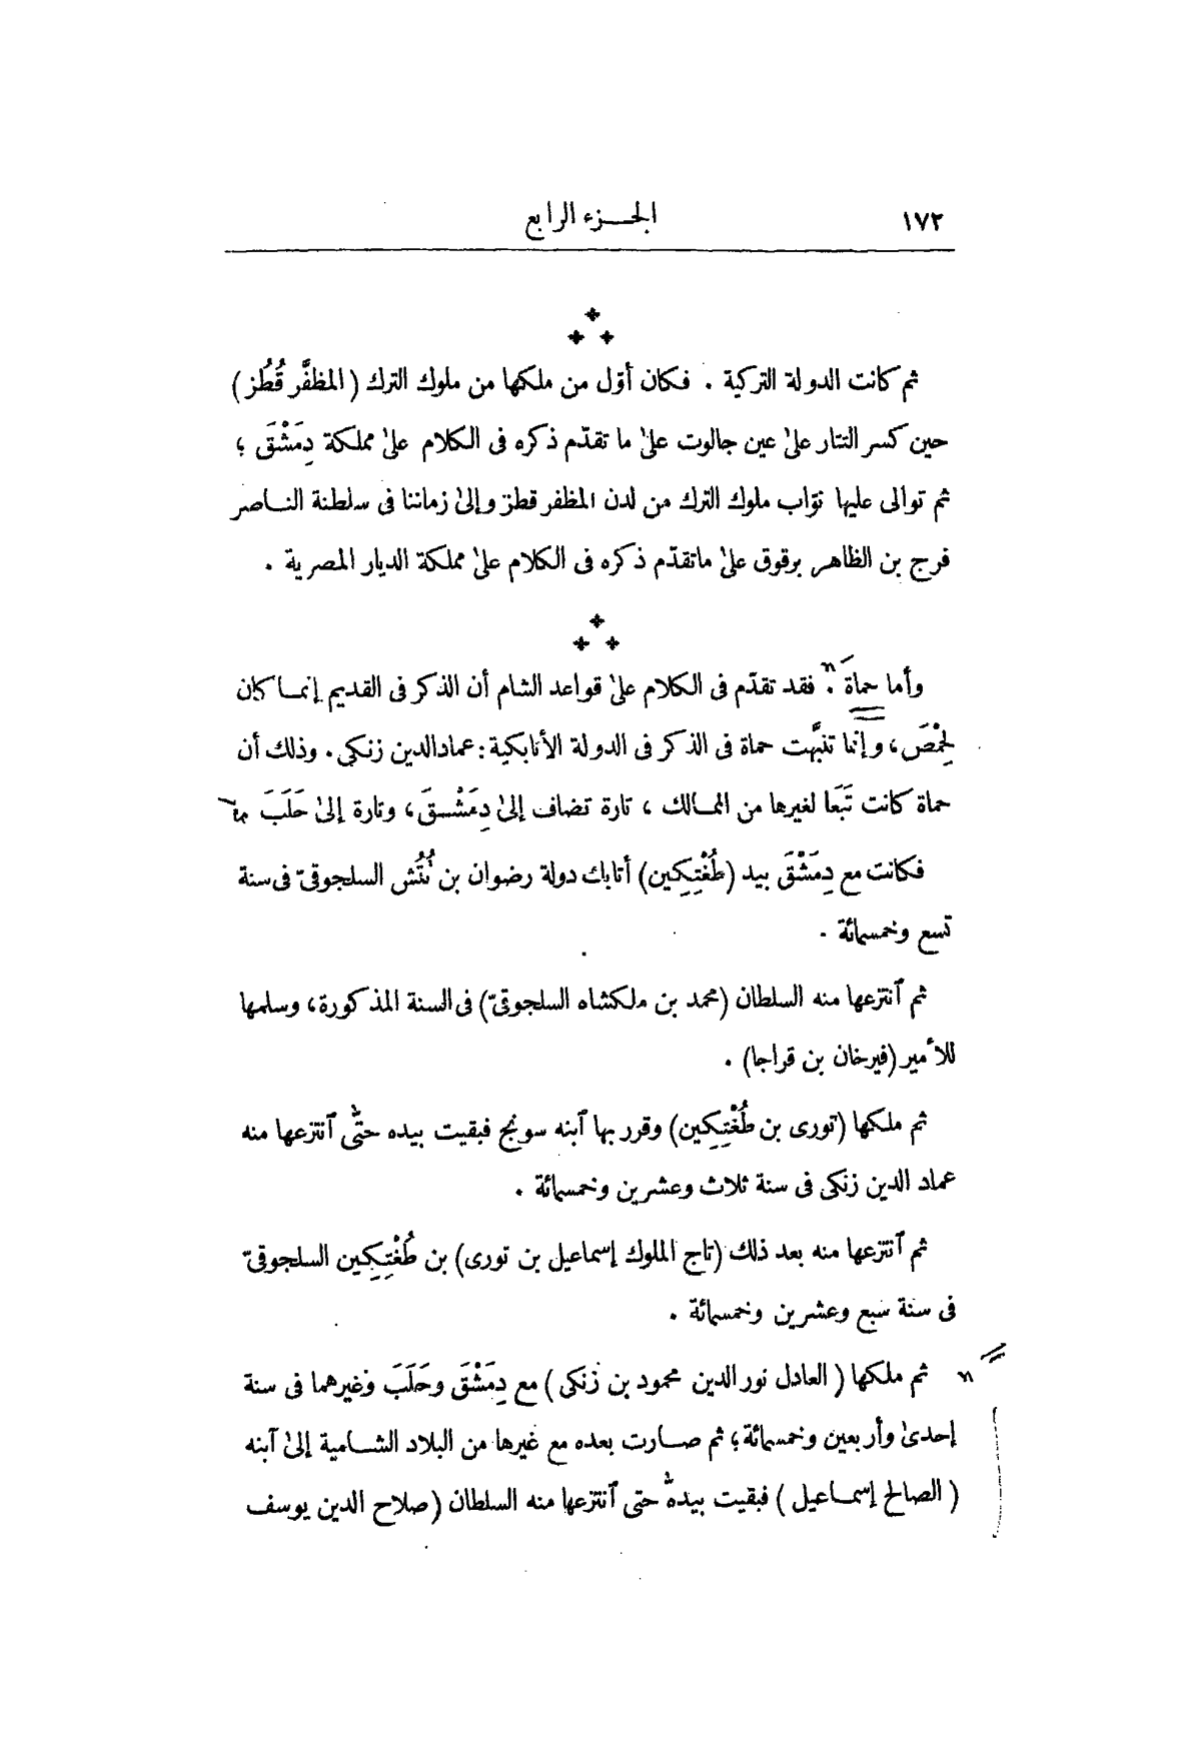 ١٧٢
الجزء الرابع
ثم كانت الدولة التركية . فكان أوّل من ملكها من ملوك الترك (المظفَّر قُطُز)
حين كسر التتار علىٰ عين جالوت علىٰ ما تقدّم ذكره فى الكلام علىٰ مملكة دِمَشْقَ ؛
ثم توالى عليها نوّاب ملوك الترك من لدن المظفر قطز وإلىٰ زماننا فى سلطنة الناصر
فرج بن الظاهر برقوق علىٰ ماتقدّم ذكره فى الكلام علىٰ مملكة الديار المصرية .
وأما حماة . فقد تقدّم فى الكلام علىٰ قواعد الشام أن الذكر فى القديم إنما كان
لِحِمْصَ، وإنما تنبَّهت حماة فى الذكر فى الدولة الأتابكية : عماد الدين زنكى . وذلك أن
حماة كانت تَبَعا لغيرها من الممالك ، تارة تضاف إلىٰ دِمَشْقَ، وتارة إلىٰ حَلَبَ
فكانت مع دِمَشْقَ بيد (طُغْتِكِين) أتابك دولة رضوان بن تُتُش السلجوقىّ فى سنة
تسع وخمسمائة .
ثم ٱنتزعها منه السلطان (محمد بن ملكشاه السلجوقىّ) فى السنة المذكورة، وسلمها
للأمير (فيرخان بن قراجا) .
ثم ملكها (تورى بن طُغْتِكِين) وقرر بها ٱبنه سونج فبقيت بيده حتّٰى ٱنتزعها منه
عماد الدين زنكى فى سنة ثلاث وعشرين وخمسمائة .
ثم ٱنتزعها منه بعد ذلك (تاج الملوك إسماعيل بن تورى) بن طُغْتِكِين السلجوقىّ
فى سنة سبع وعشرين وخمسمائة .
ثم ملكها (العادل نور الدين محمود بن زنكى) مع دِمَشْقَ وحَلَبَ وغيرهما فى سنة
إحدىٰ وأربعين وخمسمائة؛ ثم صارت بعده مع غيرها من البلاد الشامية إلىٰ ٱبنه
(الصالح إسماعيل) فبقيت بيده حتى ٱنتزعها منه السلطان (صلاح الدين يوسف